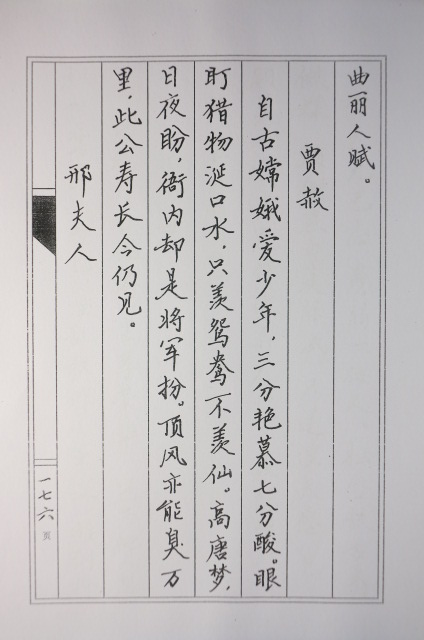 曲丽人赋。
贾赦
自古嫦娥爱少年，三分艳慕七分酸。眼
盯猎物涎口水，只羡鸳鸯不羡仙。高唐梦，
日夜盼，衙内却是将军扮。顶风亦能臭万
里，此公寿长今仍见。
邢夫人
一七六页